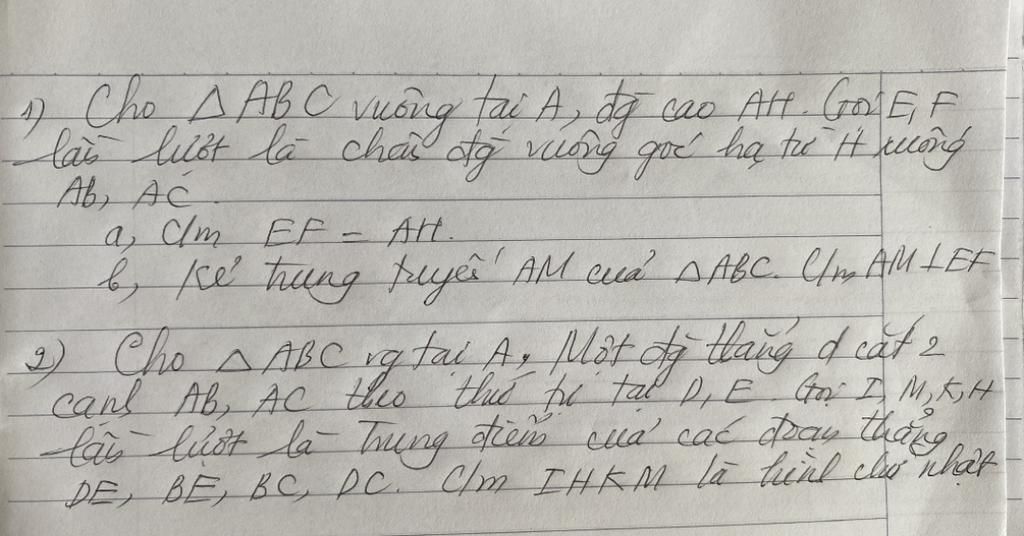 1) Cho △ABC vuông tại A, đg cao AH. Gọi E, F
lần lượt là chân đg vuông góc hạ từ H xuông
Ab, AC.
a, C/m EF = AH.
b, Kẻ trung tuyến AM của △ABC. C/m AM⊥EF
2) Cho △ABC vg tại A. Một đg thẳng d cắt 2
cạnh AB, AC theo thứ tự tại D, E. Gọi I, M, K, H
lần lượt là trung điểm của các đoạn thẳng
DE, BE, BC, DC. C/m IHKM là hình chữ nhật